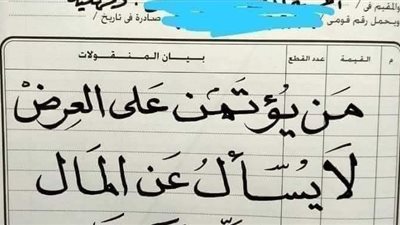 والمقيم فى /
ويحمل رقم قومى / صادرة فى تاريخ /
م القيمة عدد القطع بيان المنقولات
مَن يُؤتَمَن عَلى العِرضْ
لَا يُسْأَلُ عَن المَال